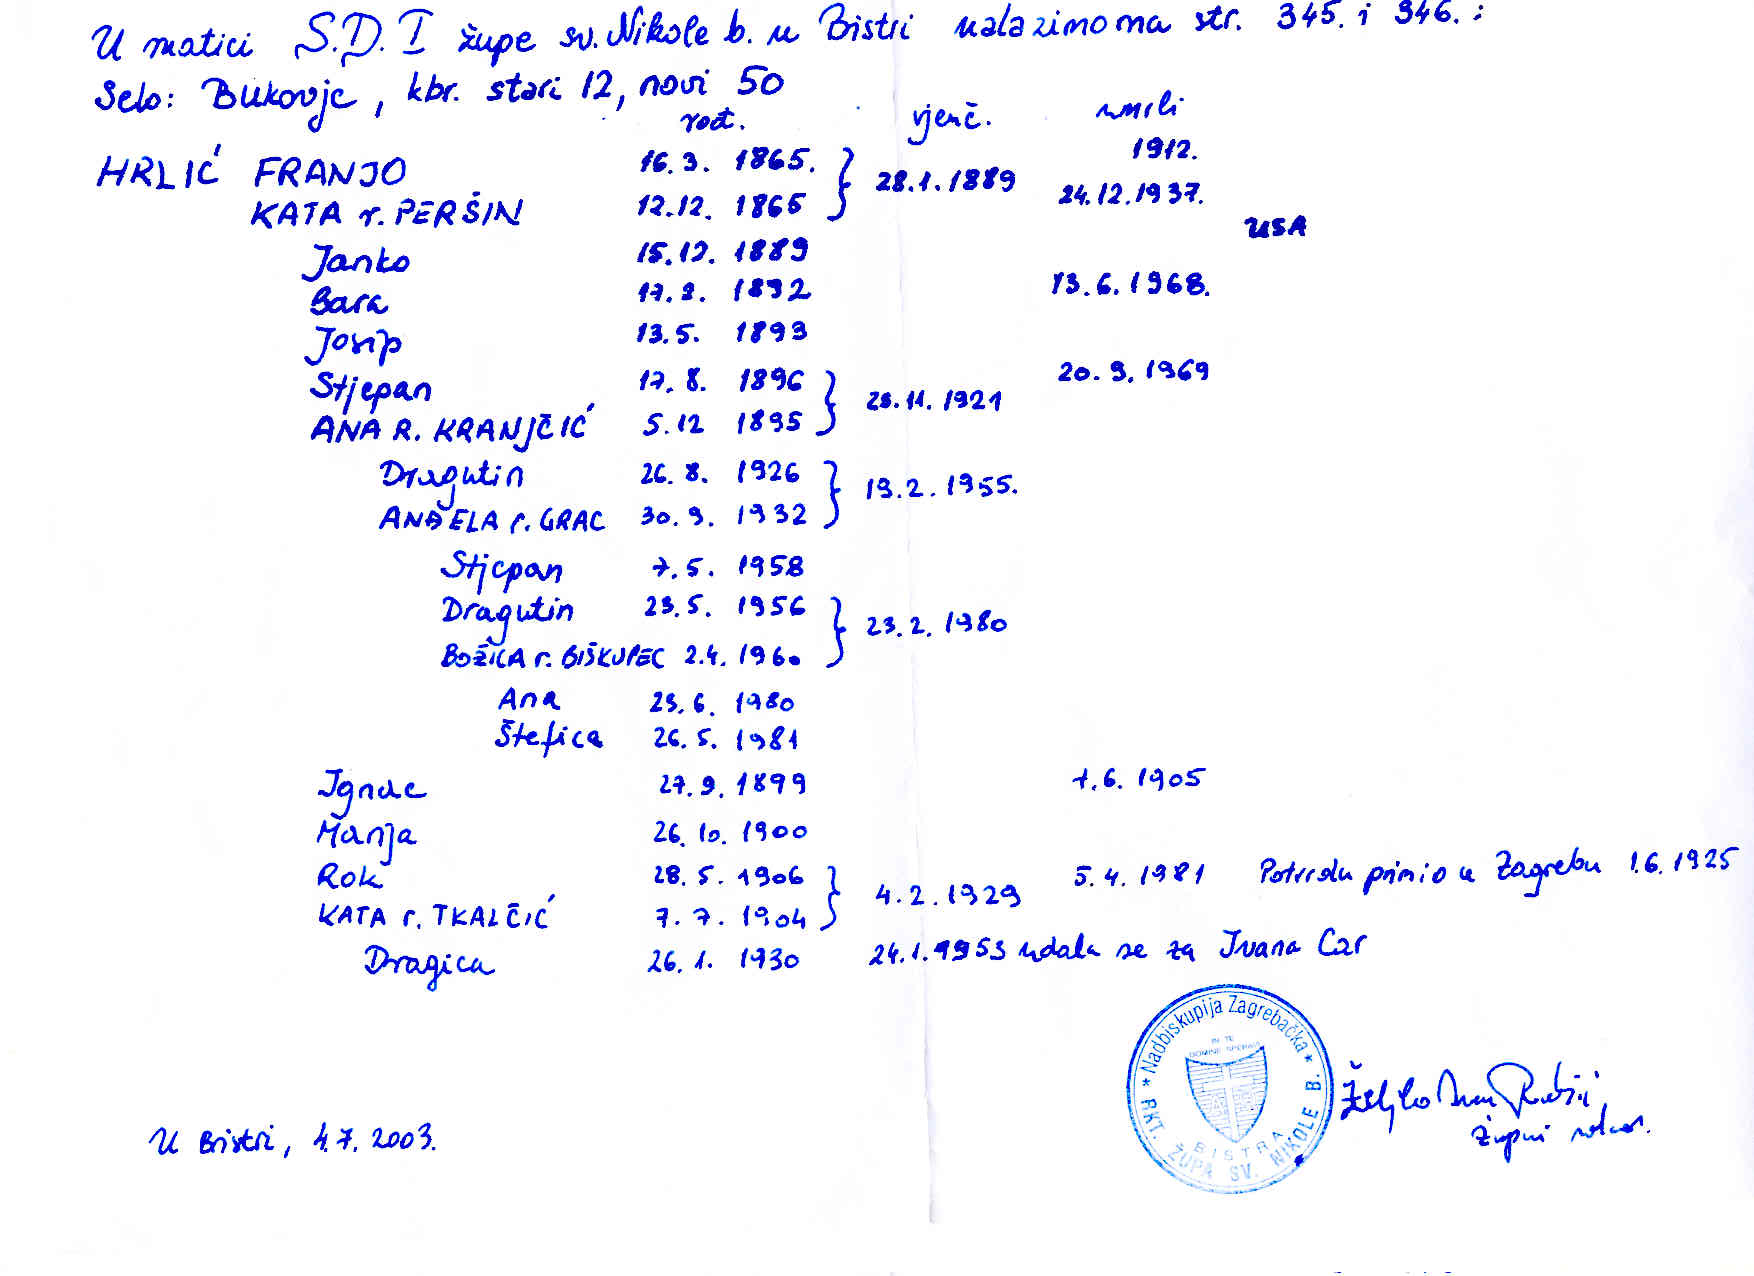 U matici S.D. I župe sv. Nikole b. u Bistri nalazimo na str. 345. i 346. :
Selo: Bukovje, kbr. stari 12, novi 50
rođ. vjenč. umrli
HRLIĆ FRANJO 16.3. 1865. } 28.1.1889 1912.
KATA r. PERŠIN 12.12. 1865 24.12.1937.
USA
Janko 15.12. 1889
Bara 17.2. 1892 13.6.1968.
Josip 13.5. 1893
Stjepan 17.8. 1896 } 28.11.1921 20.9.1969
ANA R. KRANJČIĆ 5.12 1895
Dragutin 26.8. 1926 } 19.2.1955.
ANĐELA r. GRAC 30.9. 1932
Stjepan 7.5. 1958
Dragutin 23.5. 1956 } 23.2.1980
BOŽICA r. BIŠKUPEC 2.4. 1960
Ana 23.6. 1980
Štefica 26.5. 1981
Ignac 27.9. 1899 1.6.1905
Manja 26.10. 1900
Rok 28.5. 1906 } 4.2.1929 5.4.1981 Potvrdu primio u Zagrebu 1.6.1925
KATA r. TKALČIĆ 7.7. 1904
Dragica 26.1. 1930 24.1.1953 udala se za Ivana Car
* Nadbiskupija Zagrebačka *
IN TE
DOMINE SPERAVI
BISTRA
RKT. ŽUPA SV. NIKOLE B.
Željko
župni
U Bistri, 4.7.2003.